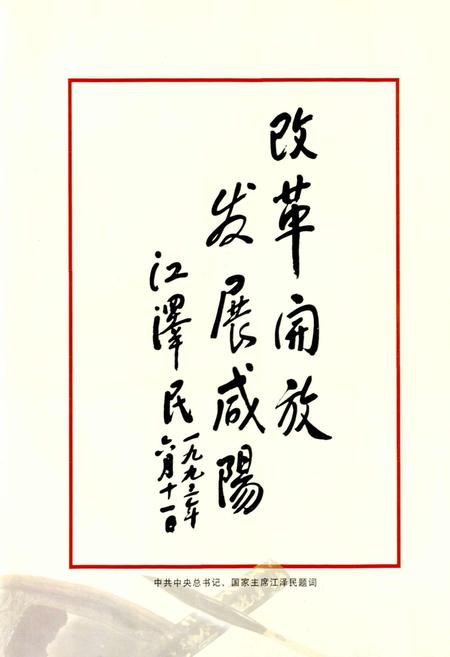 改革開放
发展咸陽
江澤民
一九九三年
六月十一日
中共中央总书记、国家主席江泽民题词